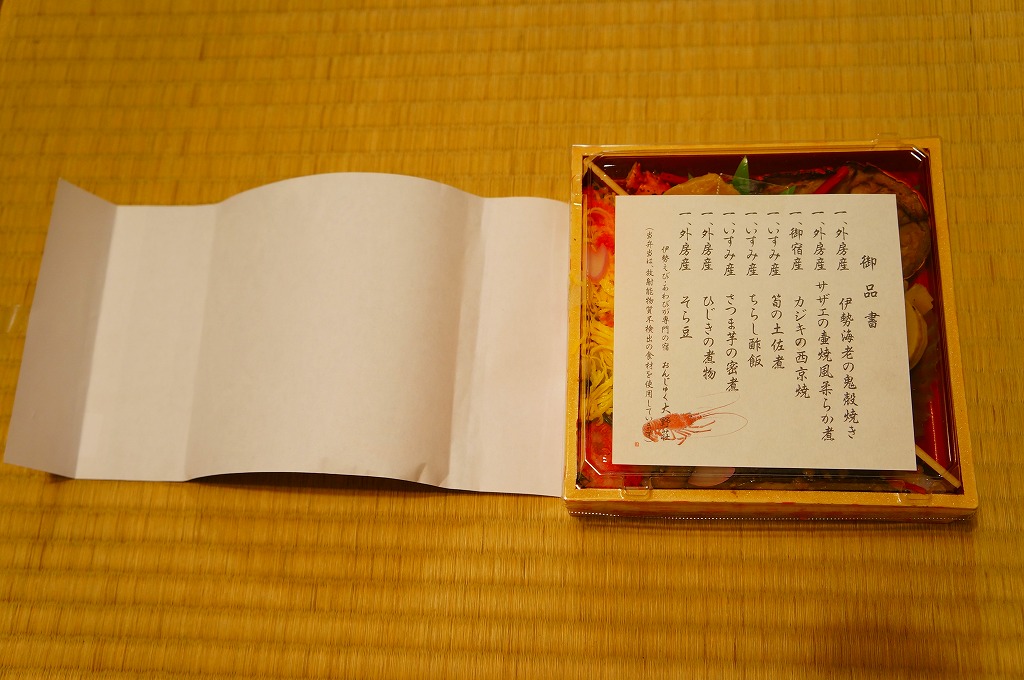 御品書
一、外房産 伊勢海老の鬼殻焼き
一、外房産 サザエの壷焼風柔らか煮
一、御宿産 カジキの西京焼
一、いすみ産 筍の土佐煮
一、いすみ産 ちらし酢飯
一、いすみ産 さつま芋の密煮
一、外房産 ひじきの煮物
一、外房産 そら豆
伊勢えび・あわびが専門の宿 おんじゅく大野荘
(当弁当は、放射能物質不検出の食材を使用しています)